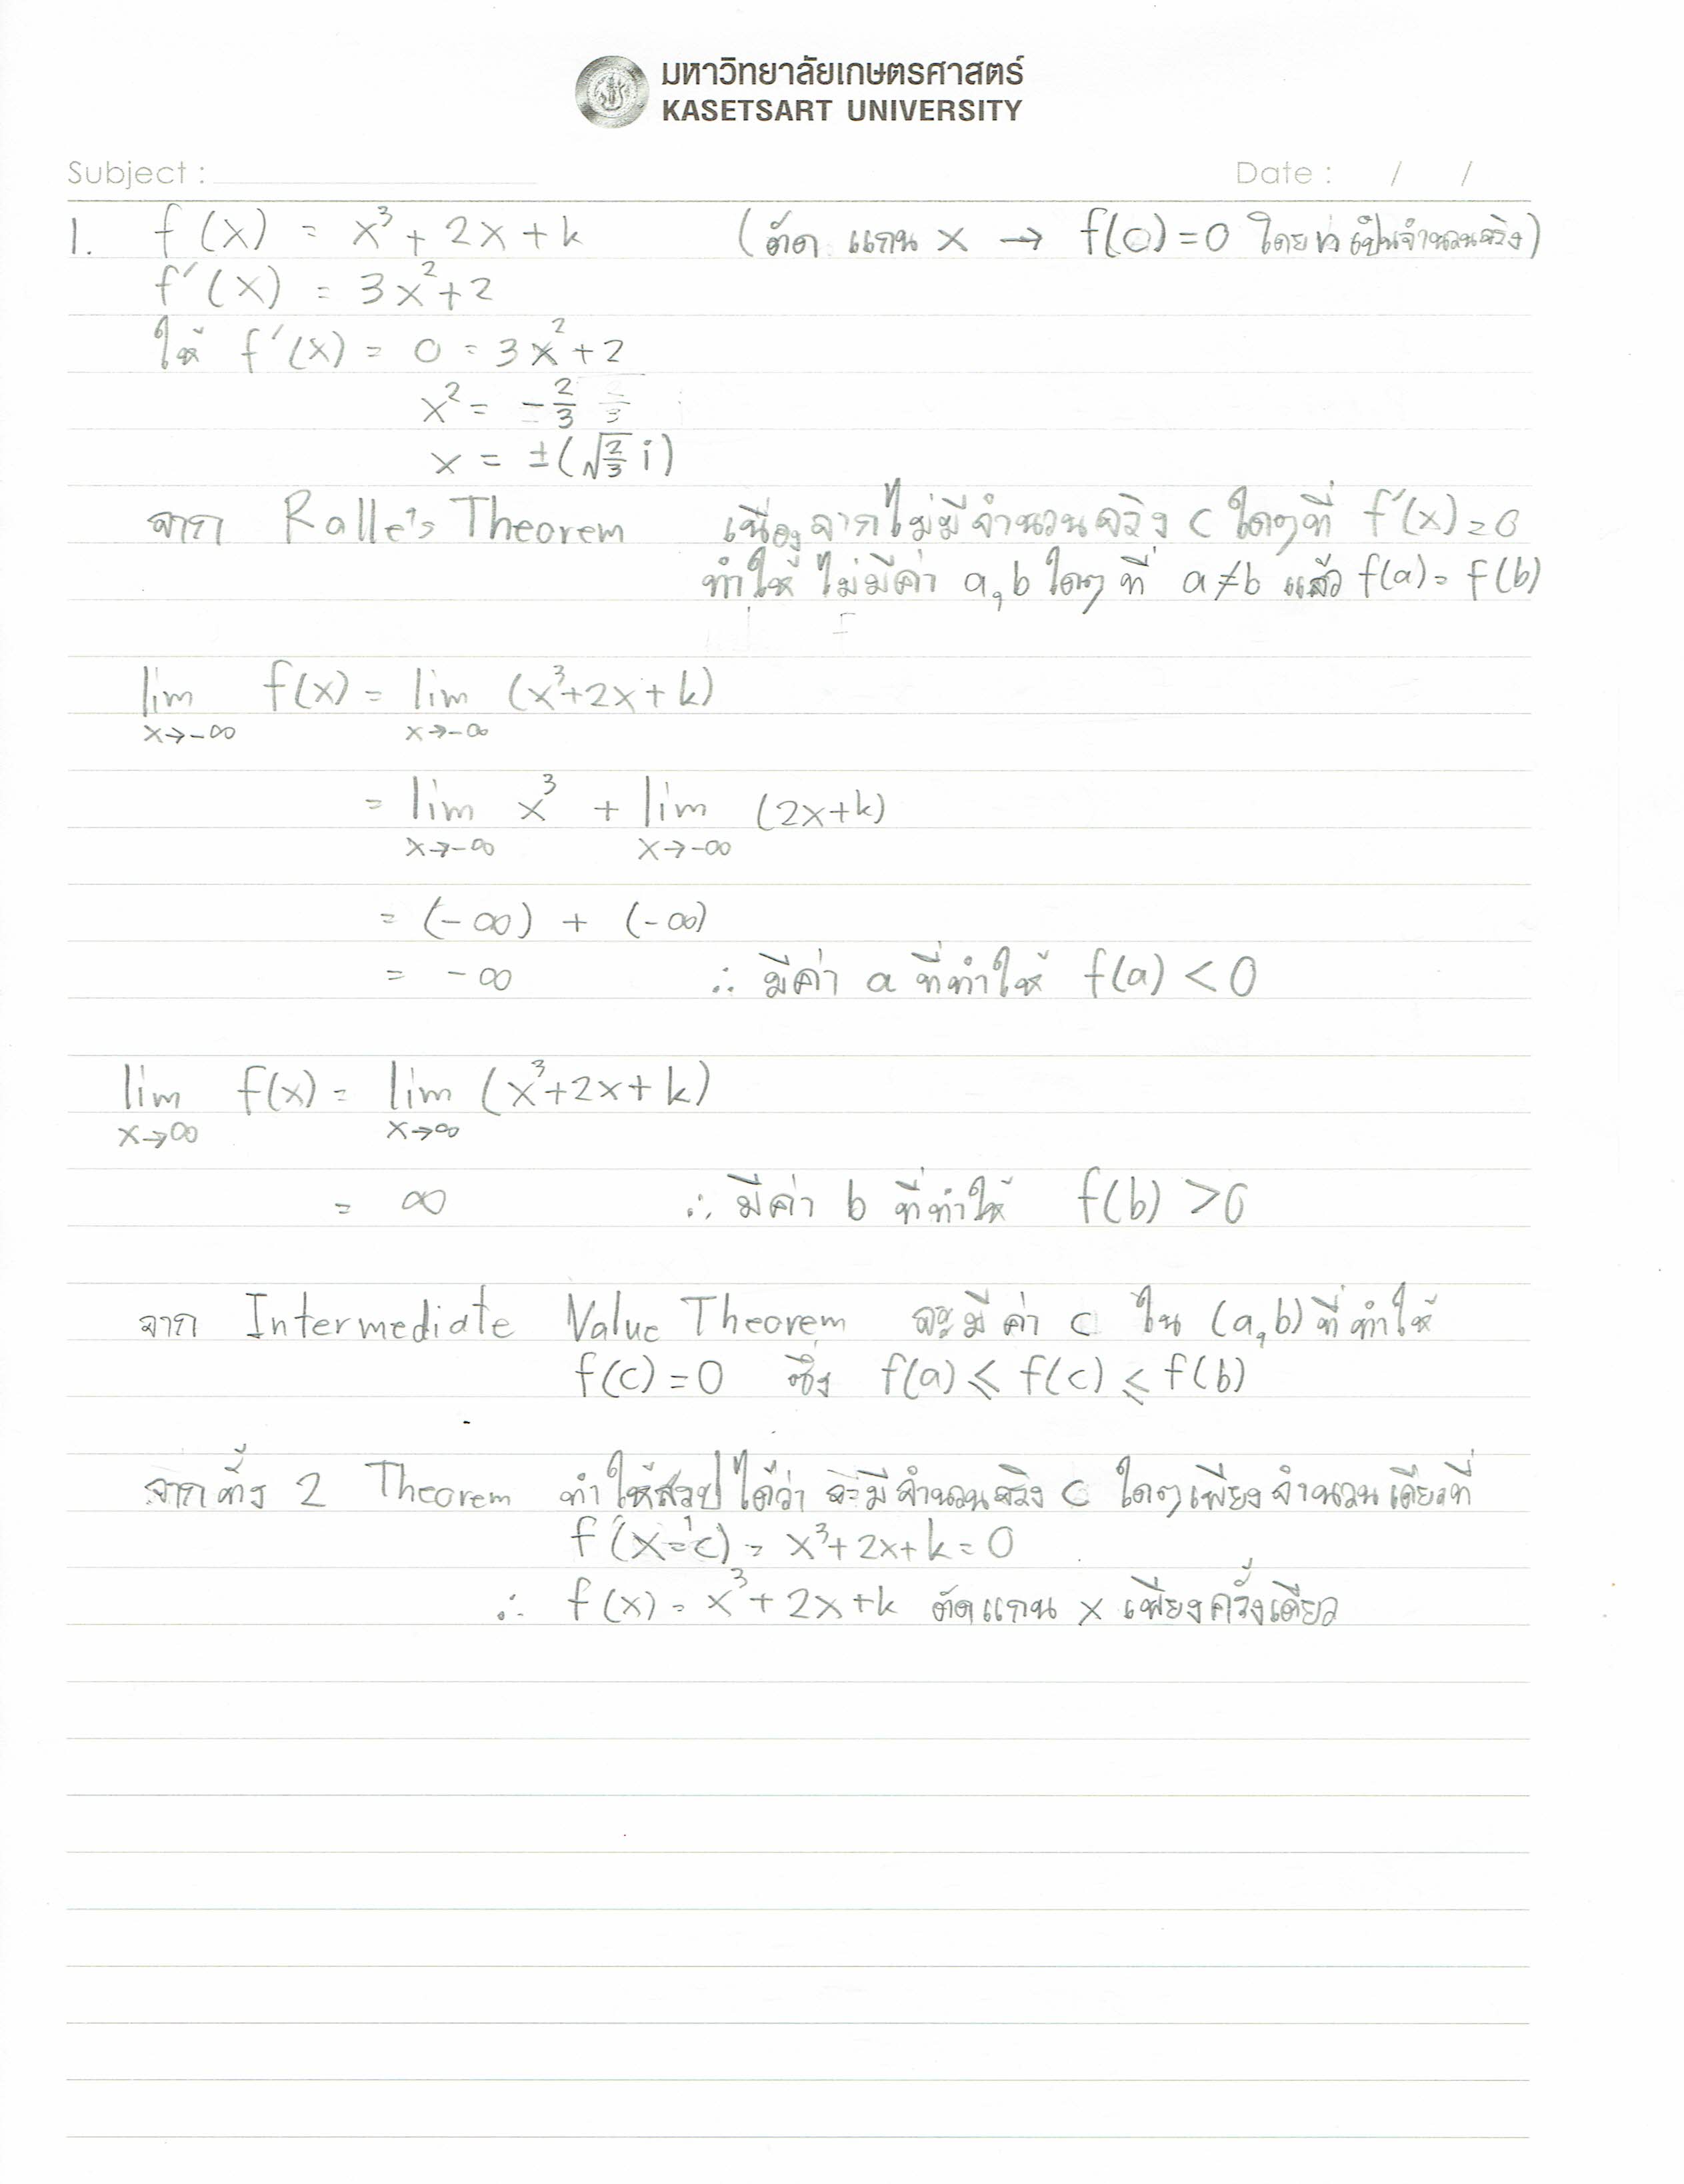 มหาวิทยาลัยเกษตรศาสตร์
KASETSART UNIVERSITY
Subject : Date : / /
1. f(x) = x³ + 2x + k (ตัด แกน x → f(c) = 0 โดย เป็นจำนวนจริง)
f'(x) = 3x² + 2
ให้ f'(x) = 0 = 3x² + 2
x² = -2/3
x = ±(√(2/3) i)
จาก Ralle's Theorem เนื่องจากไม่มีจำนวนจริง c ใดๆที่ f'(x) = 0
ทำให้ ไม่มีค่า a, b ใดๆ ที่ a ≠ b แล้ว f(a) = f(b)
lim x→-∞ f(x) = lim x→-∞ (x³ + 2x + k)
= lim x→-∞ x³ + lim x→-∞ (2x + k)
= (-∞) + (-∞)
= -∞ ∴ มีค่า a ที่ทำให้ f(a) < 0
lim x→∞ f(x) = lim x→∞ (x³ + 2x + k)
= ∞ ∴ มีค่า b ที่ทำให้ f(b) > 0
จาก Intermediate Value Theorem จะมี ค่า c ใน (a, b) ที่ทำให้
f(c) = 0 ซึ่ง f(a) ≤ f(c) ≤ f(b)
จากทั้ง 2 Theorem ทำให้สรุปได้ว่า จะมีจำนวนจริง c ใดๆเพียงจำนวนเดียวที่
f(x=c) = x³ + 2x + k = 0
∴ f(x) = x³ + 2x + k ตัดแกน x เพียงครั้งเดียว